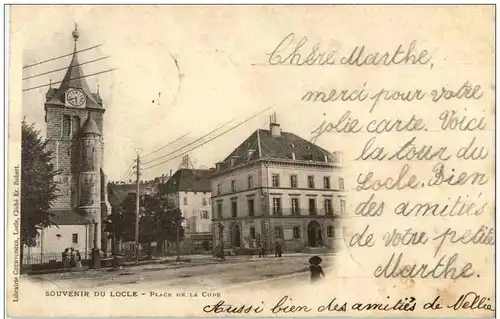 Chère Marthe,
merci pour votre
jolie carte. Voici
la tour du
Locle. Bien
des amitiés
de votre petite
Marthe.
SOUVENIR DU LOCLE - PLACE DE LA CURE
Aussi bien des amitiés de Nellie
Librairie Courvoisier, Locle, Cliché Er. Robert.